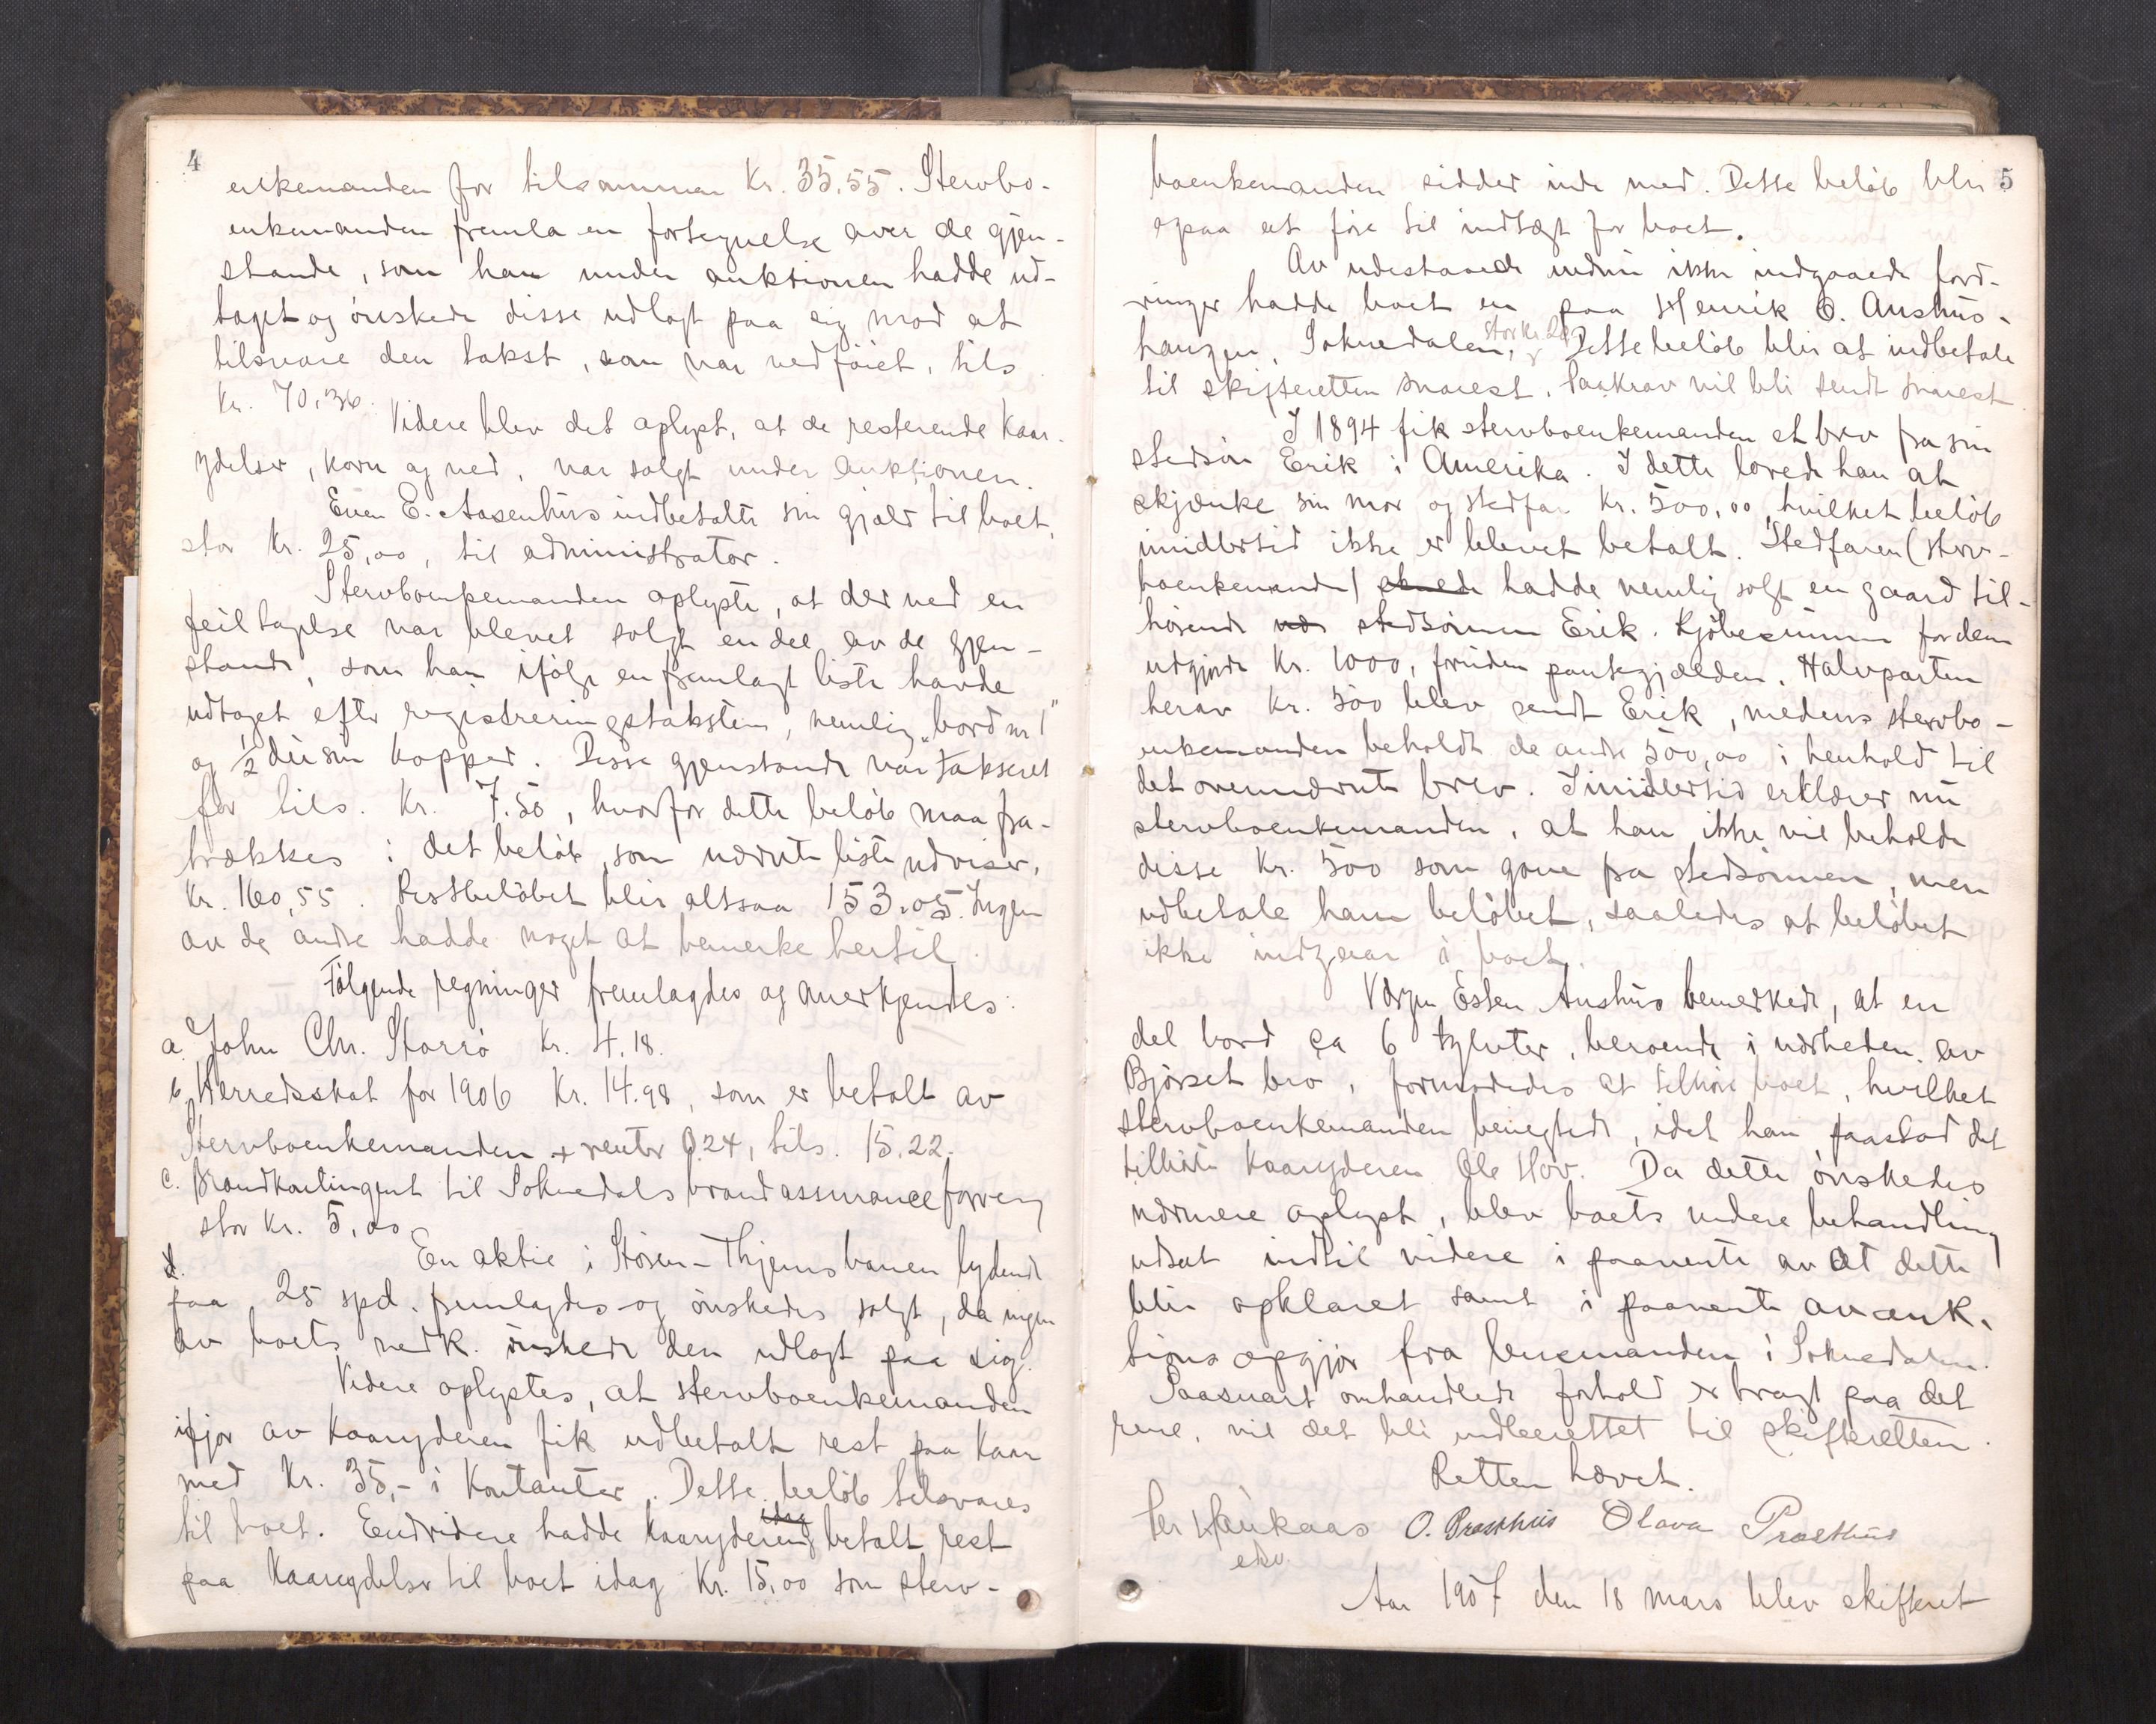 4
enkemanden for tilsammen Kr. 35.55. Stervbo-
enkemanden fremla en fortegnelse over de gjen-
stande, som han under auktionen hadde ud-
taget og ønskede disse udlagt paa sig mod at
tilsvare den takst, som var vedføiet, tils
Kr. 70,36.
Videre blev det oplyst, at de resterende kaar-
ydelser, korn og ved, var solgt under auktionen.
Even E. Aasenhus indbetalte sin gjæld til boet,
stor Kr. 25,00, til administrator.
Stervboenkemanden oplyste, at der ved en
feiltagelse var blevet solgt en del av de gjen-
stande, som han ifølge en fremlagt liste havde
udtaget efter registreringstaksten, nemlig "bord nr 1"
og 1/2 dusin kopper. Disse gjenstande var takseret
for tils. Kr. 7.50, hvorfor dette beløb maa fra-
trækkes i det beløb, som nævnte liste udviser,
Kr. 160,55. Restbeløbet blir altsaa 153.05. Ingen
av de andre hadde noget at bemerke hertil.
Følgende regninger fremlagdes og anerkjendes:
a. John Chr. Storrø Kr. 4.18.
b. Herredsskat for 1906 Kr. 14.98, som er betalt av
Stervboenkemanden + renter 0.24, tils. 15.22.
c. Brandkontingent til Soknedals brandassuranceforreng
stor Kr. 5,00
d. En aktie i Støren-Thjemsbanen lydende
paa 25 spd. fremlagdes og ønskedes solgt, da ingen
av boets vedk. ønskede den udlagt paa sig.
Videre oplystes, at stervboenkemanden
ifjor av kaaryderen fik udbetalt rest paa kaar
med Kr. 35,- i kontanter. Dette beløb tilsvares
til boet. Endvidere hadde kaaryderen idag betalt rest
paa kaarydelser til boet idag Kr. 15,00 som sterv-
5
boenkemanden sidder inde med. Dette beløb blir
ogsaa at føre til indtægt for boet.
Av udestaaende endnu ikke indgaaede ford-
ringer hadde boet en paa Henrik O. Aushus-
haugen, Soknedalen, stor kr. Dette beløb blir at indbetale
til skifteretten snarest. Paakrav vil bli sendt snarest
I 1894 fik stervboenkemanden et brev fra sin
stedsøn Erik i Amerika. I dette lovede han at
skjænke sin mor og stedfar Kr. 500,00, hvilket beløb
imidlertid ikke er blevet betalt. Stedfaren (sterv-
boenkemanden) hadde nemlig solgt en gaard til-
hørende stedsønnen Erik. Kjøbesummen for den
udgjorde Kr. 1000, foruden pantegjælden. Halvparten
herav Kr. 500 blev sendt Erik, medens stervbo-
enkemanden beholdt de andre 500,00 i henhold til
det ovennævnte brev. Imidlertid erklærer nu
stervboenkemanden, at han ikke vil beholde
disse Kr. 500 som gave fra stedsønnen, men
udbetale ham beløbet, saaledes at beløbet
ikke indgaar i boet.
Vergen Esten Aushus bemerkede, at en
del bord ca 6 tylvter, beroende i nærheden av
Bjørset bro, formodedes at tilhøre boet, hvilket
stervboenkemanden benegtede, idet han paastod det
tilhørte kaaryderen Ole Hov. Da dette ønskedes
nærmere oplyst, blev boets videre behandling
udsat indtil videre i paavente av at dette
blir opklaret samt i paavente av auk-
tionsopgjør fra lensmanden i Soknedalen.
Saasnart omhandlede forhold er bragt paa det
rene, vil det bli indberettet til skifteretten.
Retten hævet.
Per Haukaas O. Præsthus Olava Præsthus
edv.
Aar 1907 den 18 mars blev skifteret